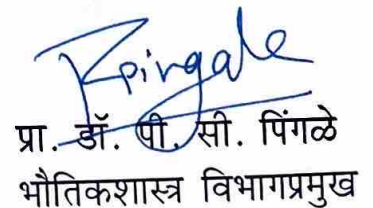 Rpingale
प्रा. डॉ. पी. सी. पिंगळे
भौतिकशास्त्र विभागप्रमुख